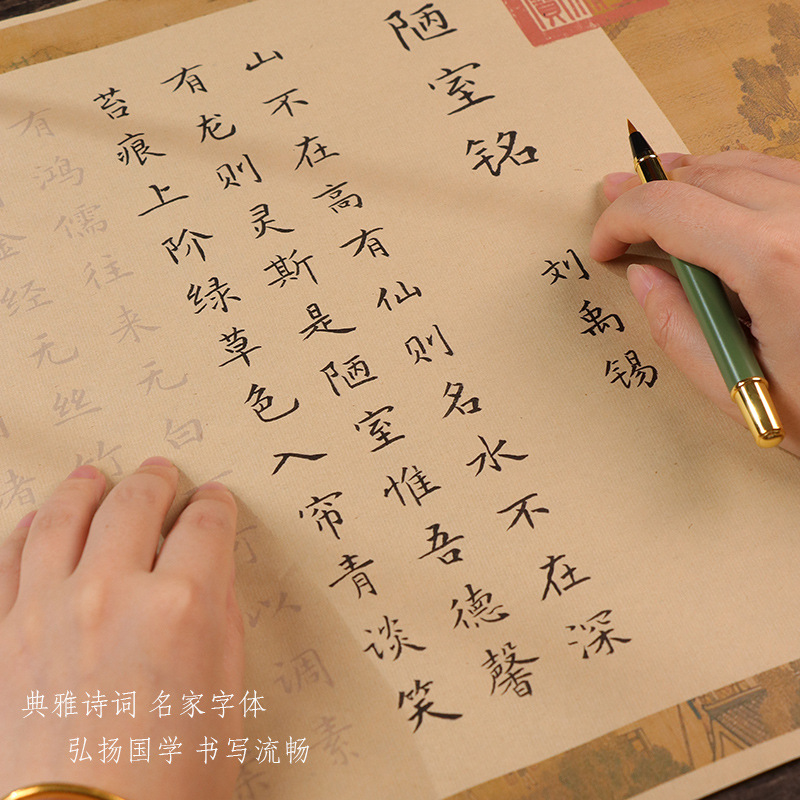 陋室铭
刘禹锡
山不在高有仙则名水不在深
有龙则灵斯是陋室惟吾德馨
苔痕上阶绿草色入帘青谈笑
有鸿儒往来无白可以调素
金经无丝竹
典雅诗词 名家字体
弘扬国学 书写流畅